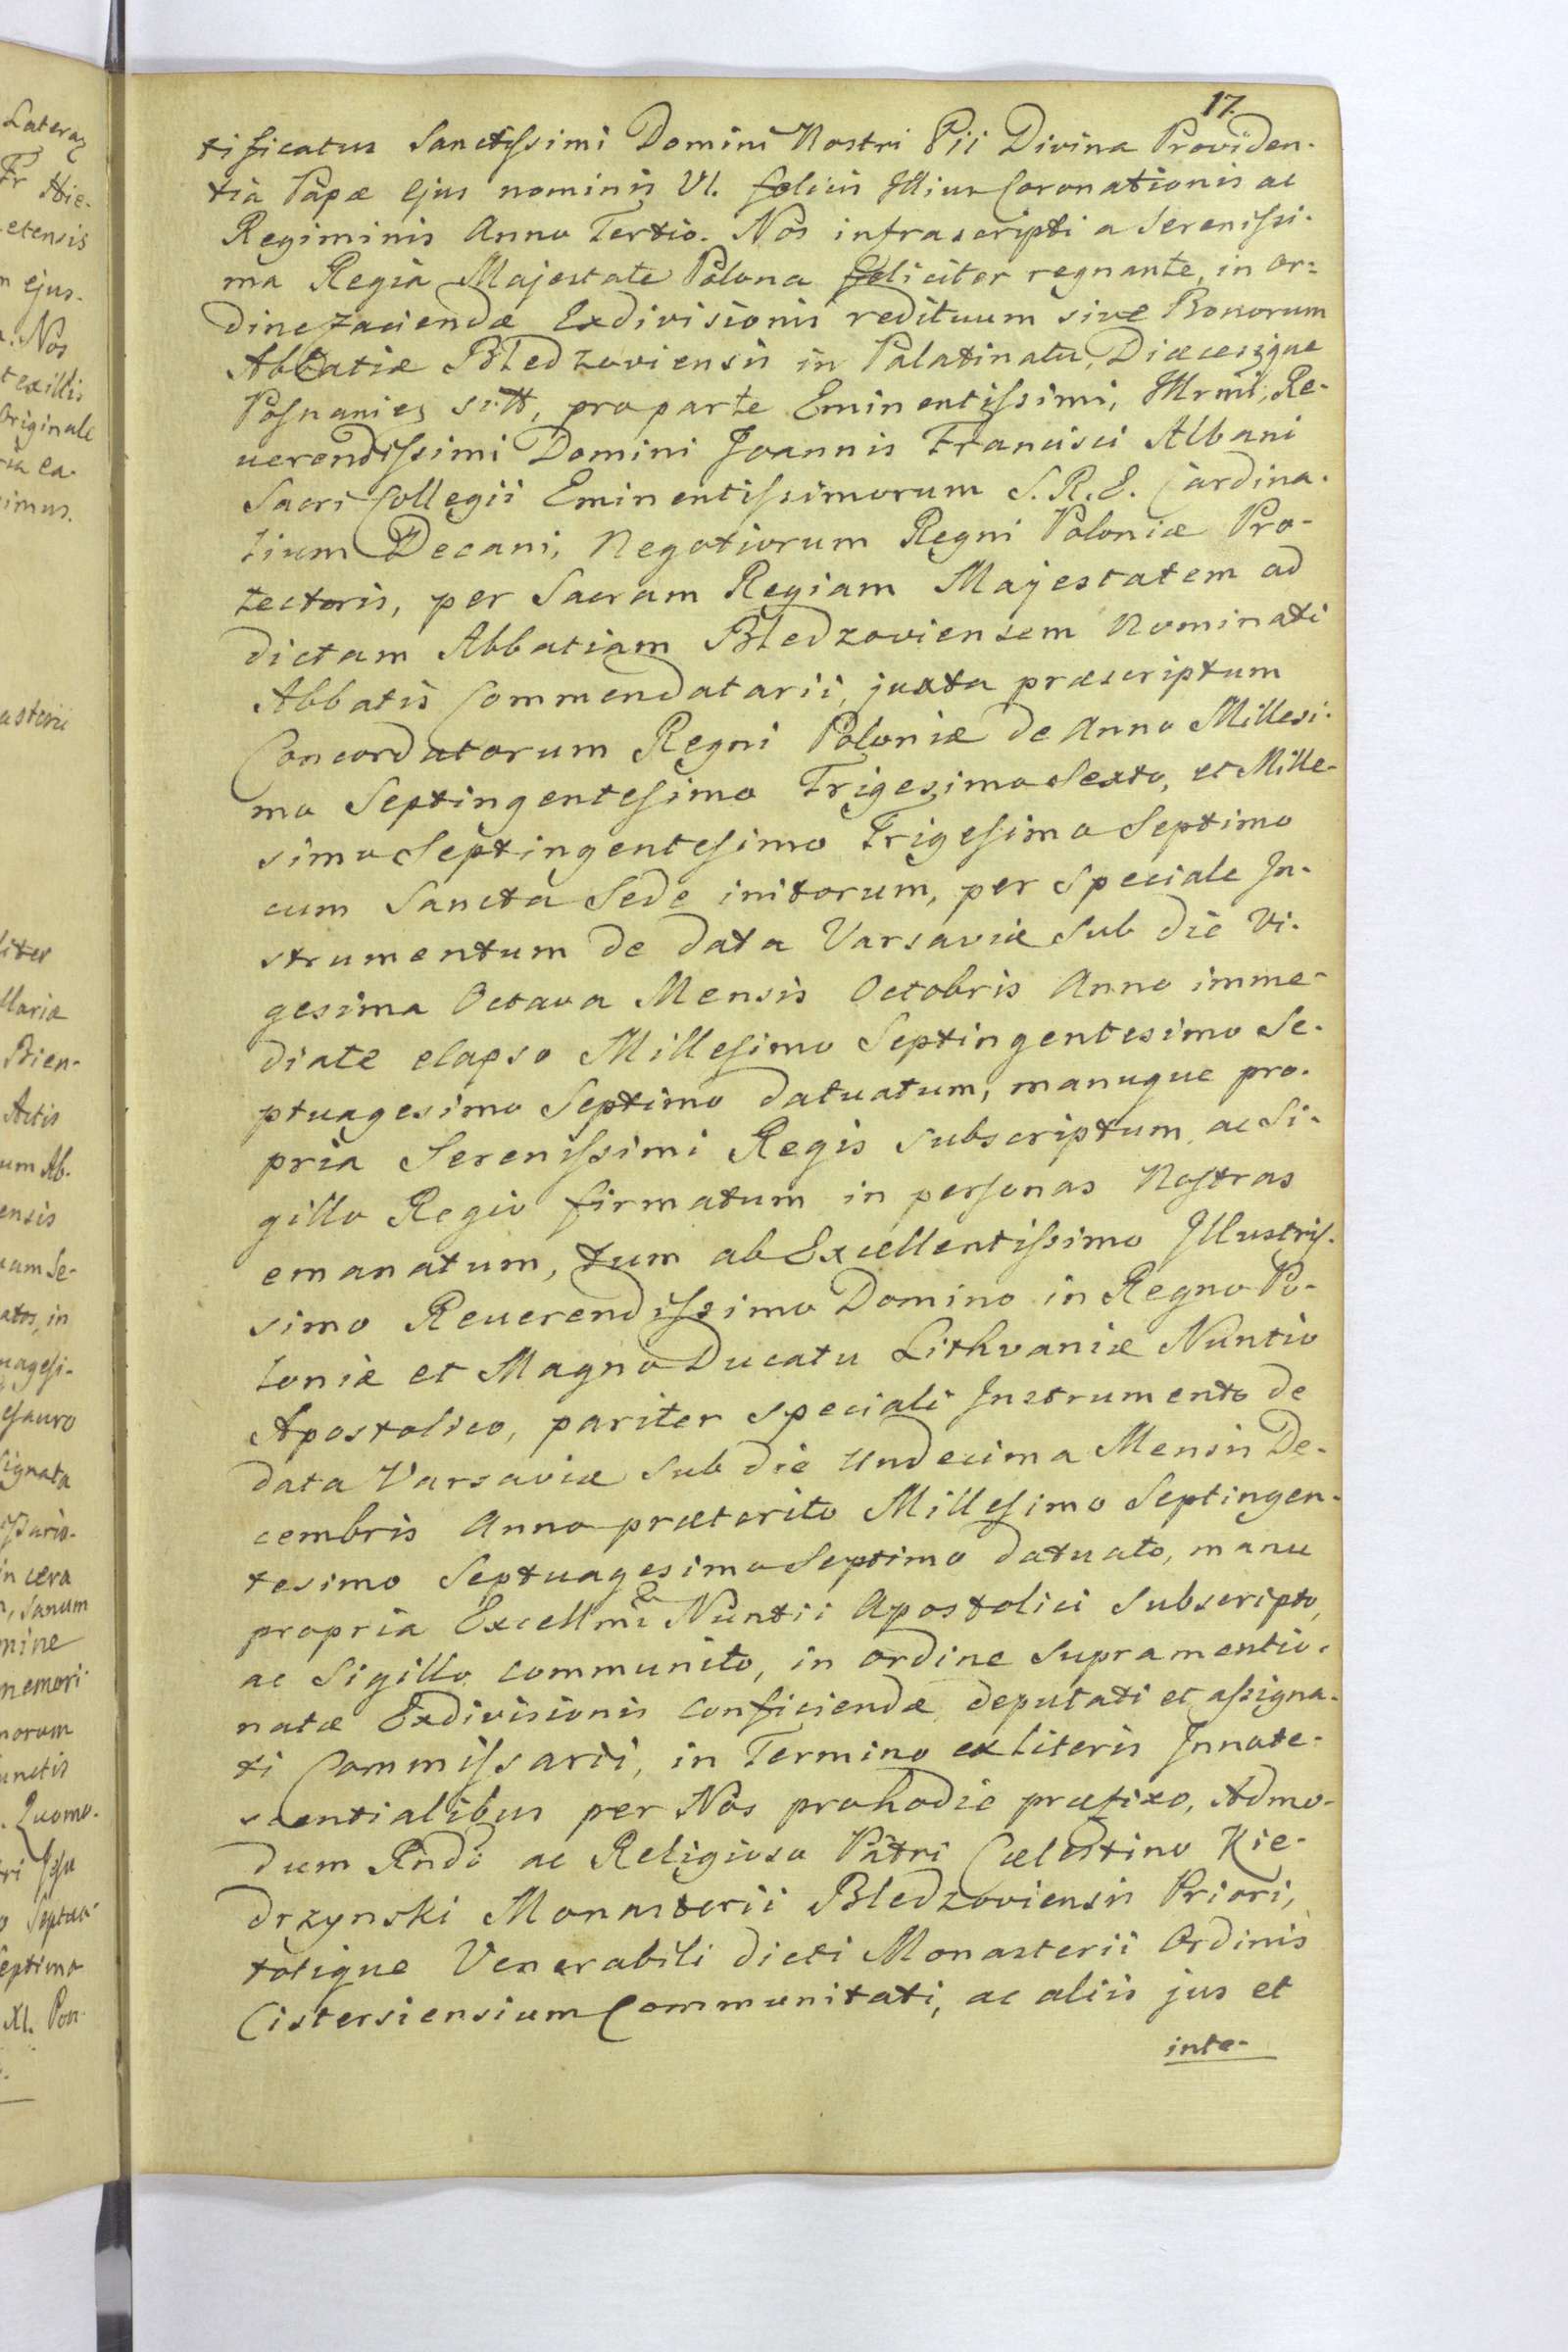 17.
tificatus Sanctissimi Domini Nostri Pii Divina Providen-
tia Papæ ejus nominis VI. felicis Illius Coronationis ac
Regiminis Anno Tertio. Nos infrascripti a Serenissi-
ma Regia Majestate Polona feliciter regnante, in or=
dine faciendæ Exdivisionis redituum sive Bonorum
Abbatiæ Bledzoviensis in Palatinatu, Diæcesique
Posnanien sitt, pro parte Eminentissimi, Illrmi, Re-
uerendissimi Domini Joannis Francisci Albani
Sacri Collegii Eminentissimorum S. R. E. Cardina-
lium Decani, Negotiorum Regni Poloniæ Pro-
tectoris, per Sacram Regiam Majestatem ad
dictam Abbatiam Bledzoviensem Nominati
Abbatis Commendatarii, juxta præscriptum
Concordatorum Regni Poloniæ de Anno Millesi-
mo Septingentesimo Trigesimo Sexto, et Mille-
simo Septingentesimo Trigesimo Septimo
cum Sancta Sede initorum, per Speciale In-
strumentum de data Varsaviæ Sub die Vi-
gesima Octava Mensis Octobris Anno imme-
diate elapso Millesimo Septingentesimo Se-
ptuagesimo Septimo datuatum, manuque pro-
pria Serenissimi Regis subscriptum, ac Si-
gillo Regio firmatum in personas Nostras
emanatum, tum ab Excellentissimo Illustris-
simo Reuerendissimo Domino in Regno Po-
loniæ et Magno Ducatu Lithvaniæ Nuntio
Apostolico, pariter speciali Instrumento de
data Varsaviæ Sub die Undecima Mensis De-
cembris Anno præterito Millesimo Septingen-
tesimo Septuagesimo Septimo datuato, manu
propria Excellmi Nuntii Apostolici Subscripto,
ac Sigillo communito, in ordine Supramentio-
natæ Exdivisionis conficiendæ, deputati et assigna-
ti Commissarii, in Termino ex literis Innote-
scentialibus per Nos prohodie præfixo, Admo-
dum Rndo ac Religioso Patri Cælestino Kie-
drzynski Monasterii Bledzoviensis Priori,
totique Venerabili dicti Monasterii Ordinis
Cistersiensium Communitati, ac aliis jus et
inte-